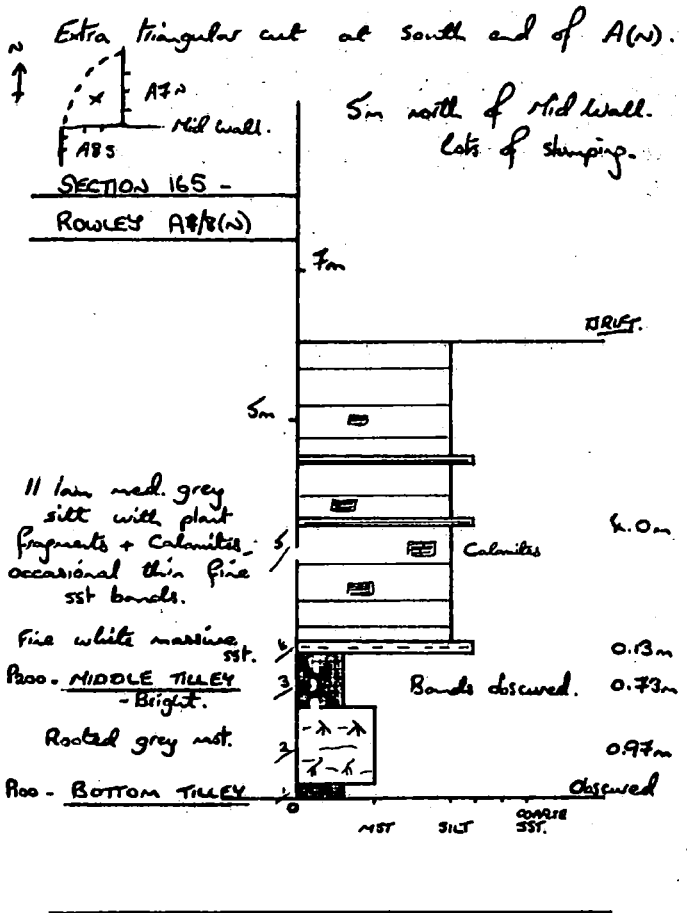 Extra triangular cut at south end of A(N).
N
A7N
X
Mid Wall.
A8S
5m north of Mid Wall.
lots of slumping.
SECTION 165 -
ROWLEY A7/8(N)
7m
DRIFT.
5m
// lam med. grey
silt with plant
fragments + Calamites,
occasional thin fine
sst bands.
5
4.0m
Calamites
Fine white massive
sst.
4
0.13m
P200 - MIDDLE TILLEY
- Bright.
3
Bands obscured.
0.73m
Rooted grey mst.
2
0.97m
P100 - BOTTOM TILLEY
1
Obscured
0
MST
SILT
COARSE
SST.